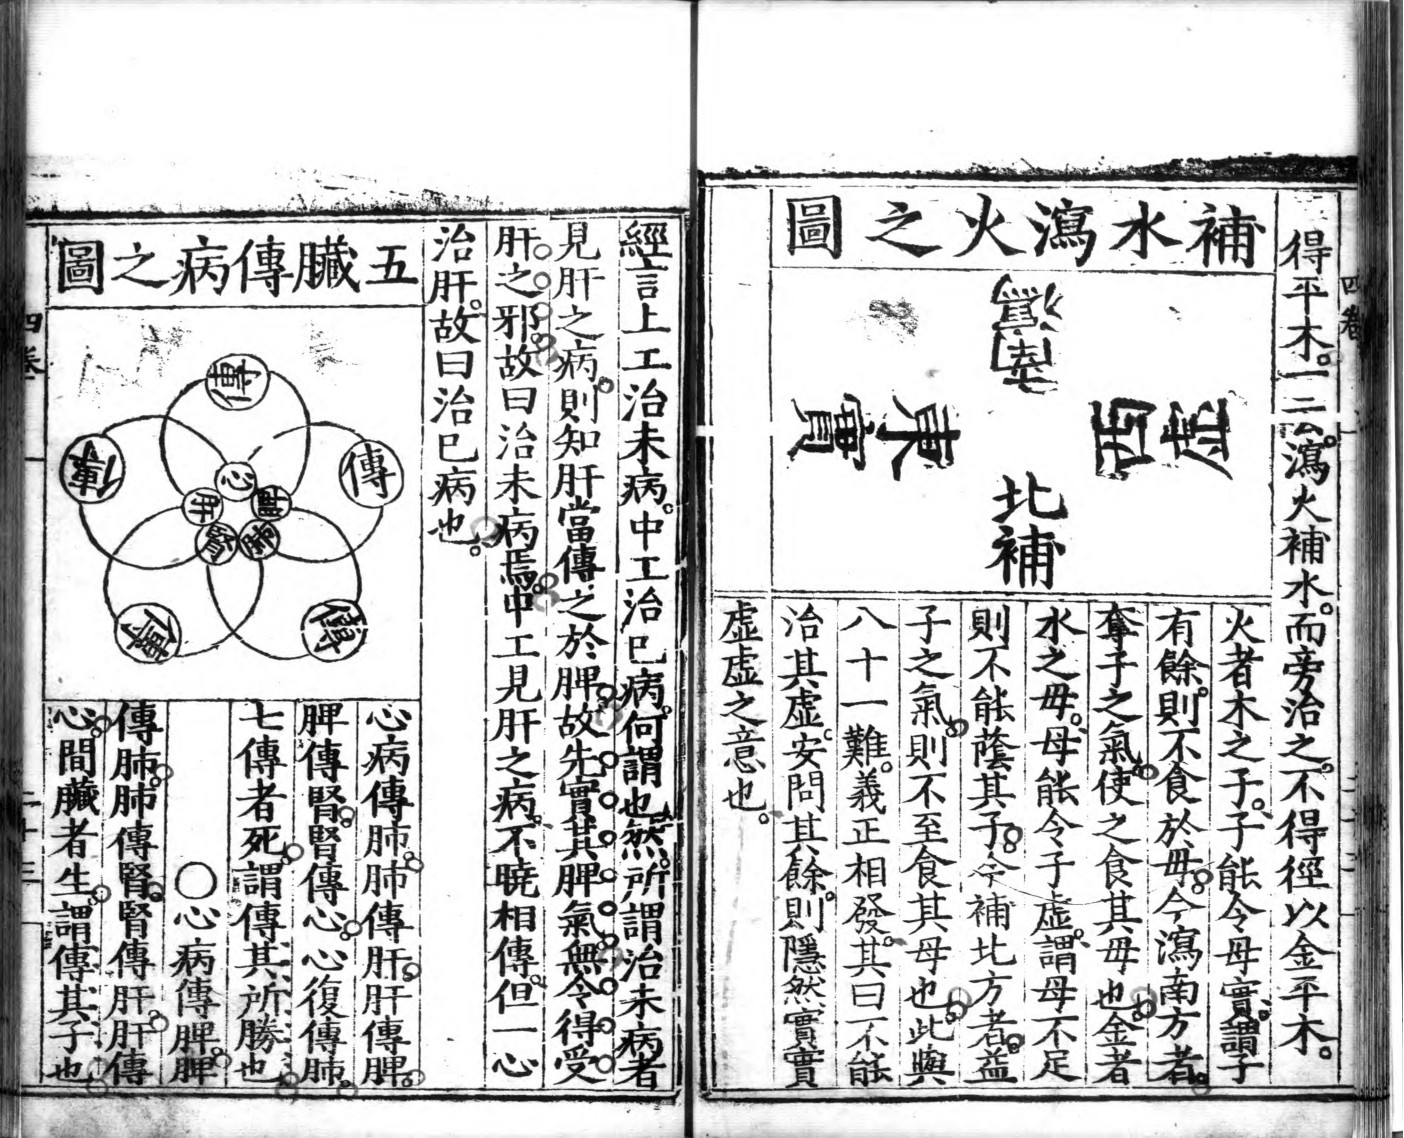 得平木。一云瀉火補水。而旁治之。不得徑以金平木。
補水瀉火之圖
南瀉
西虛
東實
北補
火者木之子。子能令母實。謂子
有餘。則不食於母。今瀉南方者。
奪子之氣。使之食其母也。金者
水之母。母能令子虛。謂母不足
則不能蔭其子。今補北方者。益
子之氣。則不至食其母也。此與
八十一難。義正相發。其曰不能
治其虛。安問其餘。則隱然實實
虛虛之意也。
四卷
經言上工治未病。中工治已病。何謂也。然。所謂治未病者
見肝之病。則知肝當傳之於脾。故先實其脾氣。無令得受
肝之邪。故曰治未病焉。中工見肝之病。不曉相傳。但一心
治肝。故曰治已病也。
五臟傳病之圖
傳
傳
傳
傳
傳
心
脾
肺
腎
肝
心病傳肺肺傳肝肝傳脾。
脾傳腎腎傳心心復傳肺。
七傳者死。謂傳其所勝也
〇心病傳脾脾
傳肺。肺傳腎腎傳肝肝傳
心。間臟者生。謂傳其子也
四卷
二十三